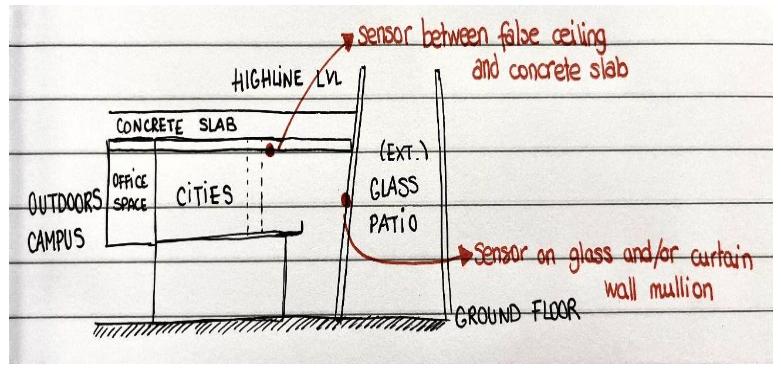 Sensor between false ceiling
and concrete slab
HIGHLINE LVL
CONCRETE SLAB
(EXT.)
GLASS
PATIO
OFFICE
SPACE
CITIES
OUTDOORS
CAMPUS
Sensor on glass and/or curtain
wall mullion
GROUND FLOOR